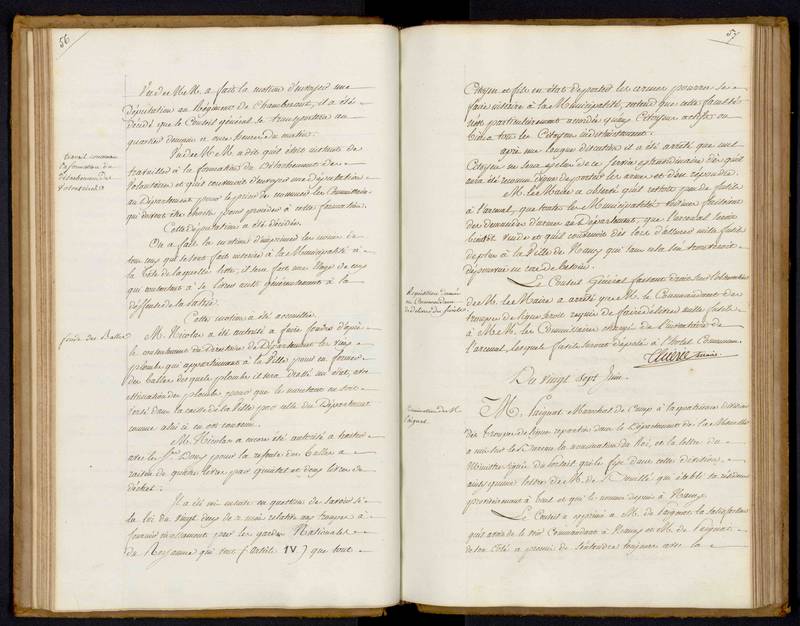 56
Un de M.M. a fait la motion d'envoyer une
députation au Régiment de Chamborant, il a été
décidé que le Conseil général se transportera au
quartier demain à onze heures du matin.
Un de M.M. a dit qu'il étoit instant de
travail
la formation du
détachement de
Volontaires
travailler à la formation du Détachement de
Volontaires et qu'il convenoit d'envoyer une Députation
au Département pour le prier de nommer les Commissaires
qui doivent être choisis pour procéder à cette formation.
Cette députation a été décidée.
On a fait la motion d'imprimer les noms de
tous ceux qui se sont fait inscrire à la Municipalité, à
la tête de laquelle liste, il sera fait une éloge de ceux
qui consentent à se livrer aussi généreusement à la
deffense de la patrie.
Cette motion a été accueillie.
fonte des Balles
M. Nicolas a été autorisé à faire fondre d'après
le consentement du Directoire du Département les vieux
plombs qui appartiennent à la Ville pour en former
des balles desquels plombs il sera dressé un état, avec
estimation des plombs pour que le montant en soit
versé dans la caisse de la Ville par celle du Département
comme ainsi il en est convenu.
M. Nicolas a encore été autorisé à traiter
avec le Sr. Dony pour la refonte des balles à
raison de quatre livres par quintal et deux livres de
déchet.
Il a été mis ensuite en question de savoir si
la loi du vingt deux de ce mois relative aux troupes à
fournir par les gardes Nationales
du Royaume qui veut (article IV) que tout
57
Citoyen et fils en état de porter les armes pourra se
faire inscrire à la Municipalité, entend que cette faculté
soit particulièrement accordée qu'aux Citoyens actifs ou
bien à tous les Citoyens indistinctement.
après une longue discution il a été arrêté que nul
Citoyen ne sera exclu de ce service extraordinaire dès qu'il
aura été reconnu digne de porter les armes et d'en répondre.
M. le Maire a observé qu'il restoit peu de fusils
à l'arsenal, que toutes les Municipalités voisines faisoient
des demandes d'armes au Département, que l'arsenal seroit
bientôt vuide et qu'il convenoit dès lors d'assurer mille fusils
de plus à la Ville de Nancy qui sans cela s'en trouveroit
dépourvue en cas de besoin.
Réquisition donnée
au Commandant
de délivrer des fusils
Le Conseil Général faisant droit sur l'observation
de M. le Maire a arrêté que M. le Commandant des
troupes de ligne seroit requis de faire délivrer mille fusils
à M.M. les Commissaires chargés de l'inventaire de
l'arsenal, lesquels fusils seront déposés à l'hotel Commun.
Du vingt sept Juin.
Nomination de M.
M. Maréchal de Camp à la quatrieme division
des troupes de ligne repartie dans le Département de la Moselle
a mis sur le Bureau la nomination du Roi, et la lettre du
Ministre signée Duportail qui le fixe dans cette division,
ainsi qu'une lettre de M. de Bouillé qui établit sa résidence
provisoirement à Toul et qui le nomme depuis à Nancy.
Le Conseil a exprimé à M. de la satisfaction
qu'il avoit de le voir Commandant à Nancy et M. de
de son côté a promis de s'entendre toujours avec la